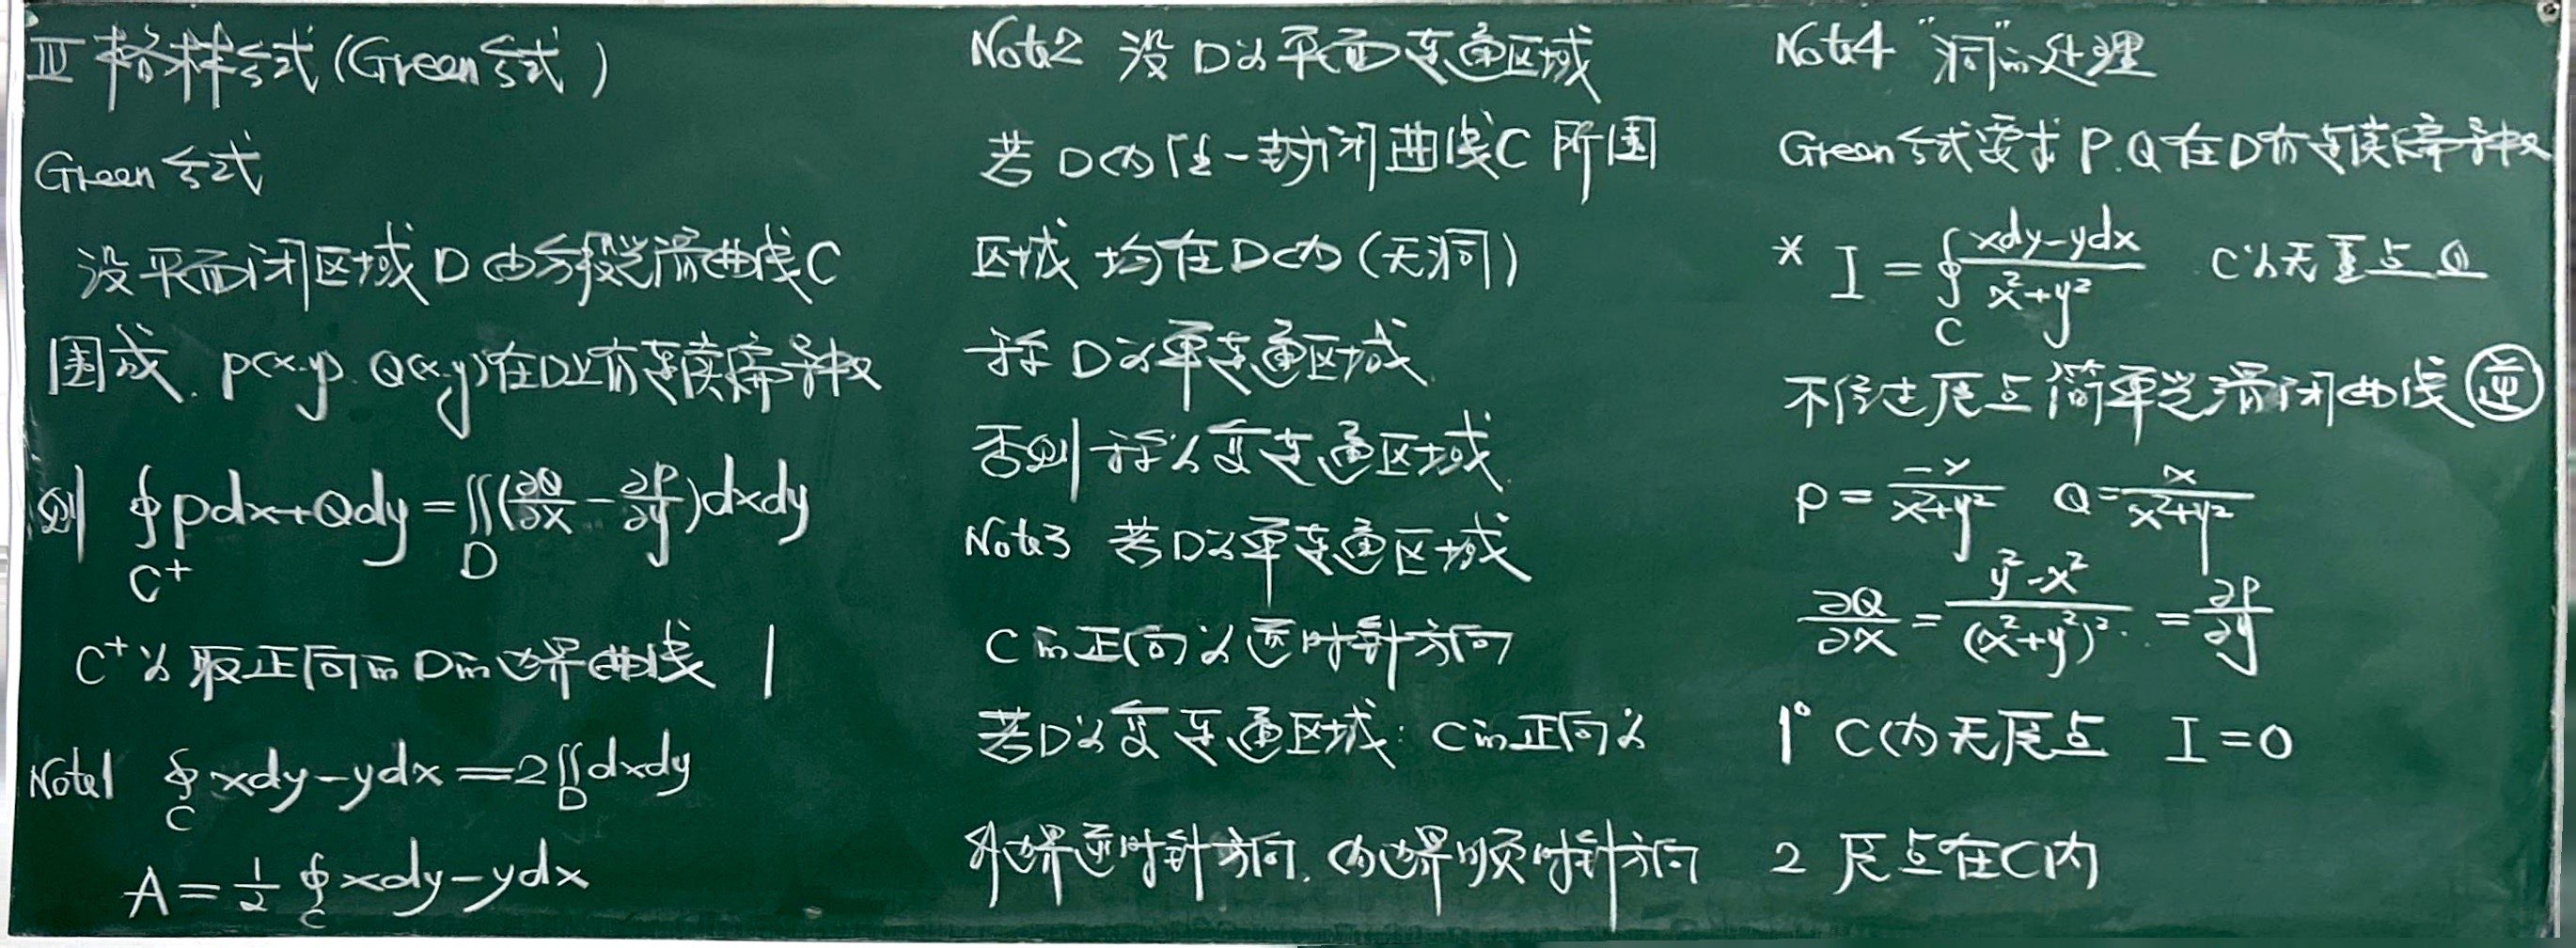 III 格林公式(Green公式)
Green公式
设平面闭区域D由分段光滑曲线C
围成. P(x,y). Q(x,y)在D上有连续偏导数
则 ∮_{C⁺} Pdx+Qdy = ∬_D (∂Q/∂x − ∂P/∂y)dxdy
C⁺为取正向的D的边界曲线
Note1 ∮_C xdy−ydx = 2∬_D dxdy
A = 1/2 ∮_C xdy−ydx
Note2 设D为平面连通区域
若D内任一封闭曲线C所围
区域均在D内(无洞)
称D为单连通区域
否则称为复连通区域
Note3 若D为单连通区域
C的正向为逆时针方向
若D为复连通区域: C的正向为
外边界逆时针方向. 内边界顺时针方向
Note4 "洞"的处理
Green公式要求P.Q在D有连续偏导数
* I = ∮_C (xdy−ydx)/(x²+y²) C为无重点且
不经过原点简单光滑闭曲线 逆
P = −y/(x²+y²) Q = x/(x²+y²)
∂Q/∂x = (y²−x²)/(x²+y²)² = ∂P/∂y
1° C内无原点 I=0
2 原点在C内